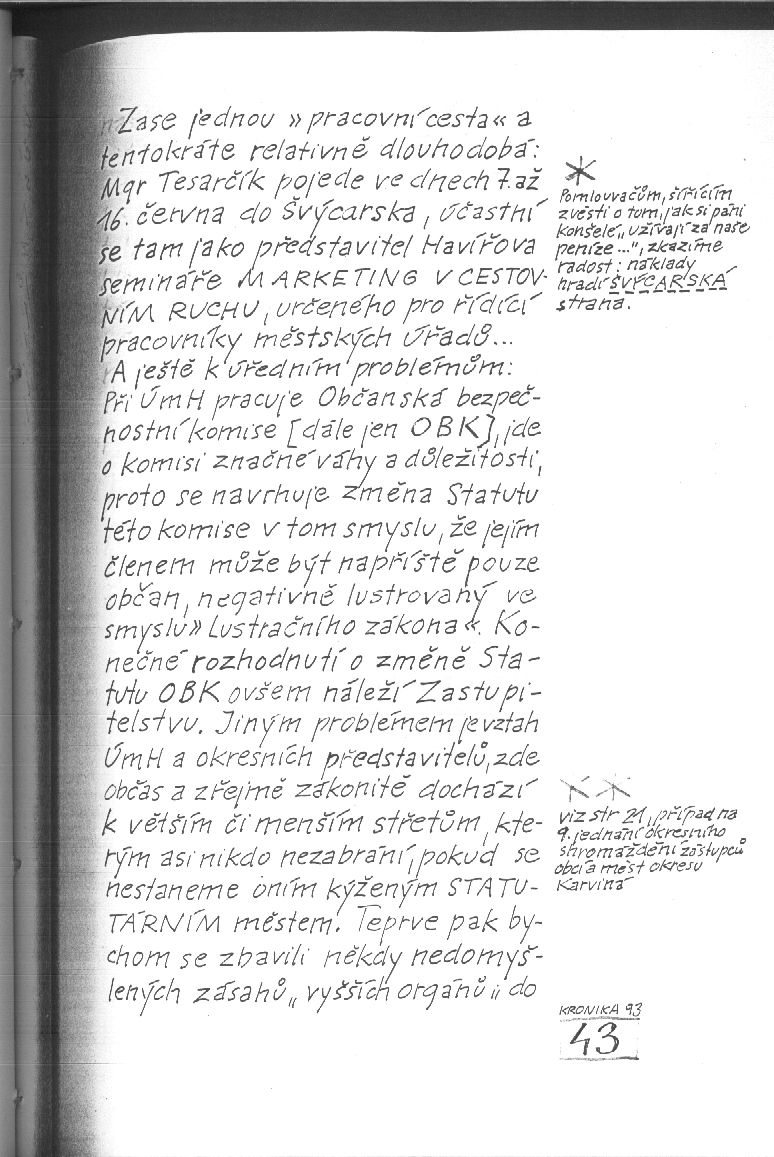 Zase jednou » pracovní cesta « a
tentokráte relativně dlouhodobá:
Mgr Tesarčík pojede ve dnech 7. až
16. června do Švýcarska, účastní
se tam jako představitel Havířova
semináře MARKETING V CESTOV-
NÍM RUCHU, určeného pro řídící
pracovníky městských úřadů...
A ještě k úředním problémům:
Při ÚmH pracuje Občanská bezpeč-
nostní komise [dále jen OBK], jde
o komisi značné váhy a důležitosti,
proto se navrhuje změna Statutu
této komise v tom smyslu, že jejím
členem může být napříště pouze
občan, negativně lustrovaný ve
smyslu » Lustračního zákona «. Ko-
nečné rozhodnutí o změně Sta-
tutu OBK ovšem náleží Zastupi-
telstvu. Jiným problémem je vztah
ÚmH a okresních představitelů, zde
občas a zřejmě zákonitě dochází
k větším či menším střetům, kte-
rým asi nikdo nezabrání, pokud se
nestaneme oním kýženým STATU-
TÁRNÍM městem. Teprve pak by-
chom se zbavili někdy nedomyš-
lených zásahů „ vyšších orgánů „ do
*
Pomlouvačům, šířícím
zvěsti o tom, jak si páni
konšelé „ užívají za naše
peníze...", zkazíme
radost: náklady
hradí ŠVÝCARSKÁ
strana.
**
viz str 21, případ na
9. jednání okresního
shromáždění zástupců
obcí a měst okresu
Karviná
KRONIKA 93
43